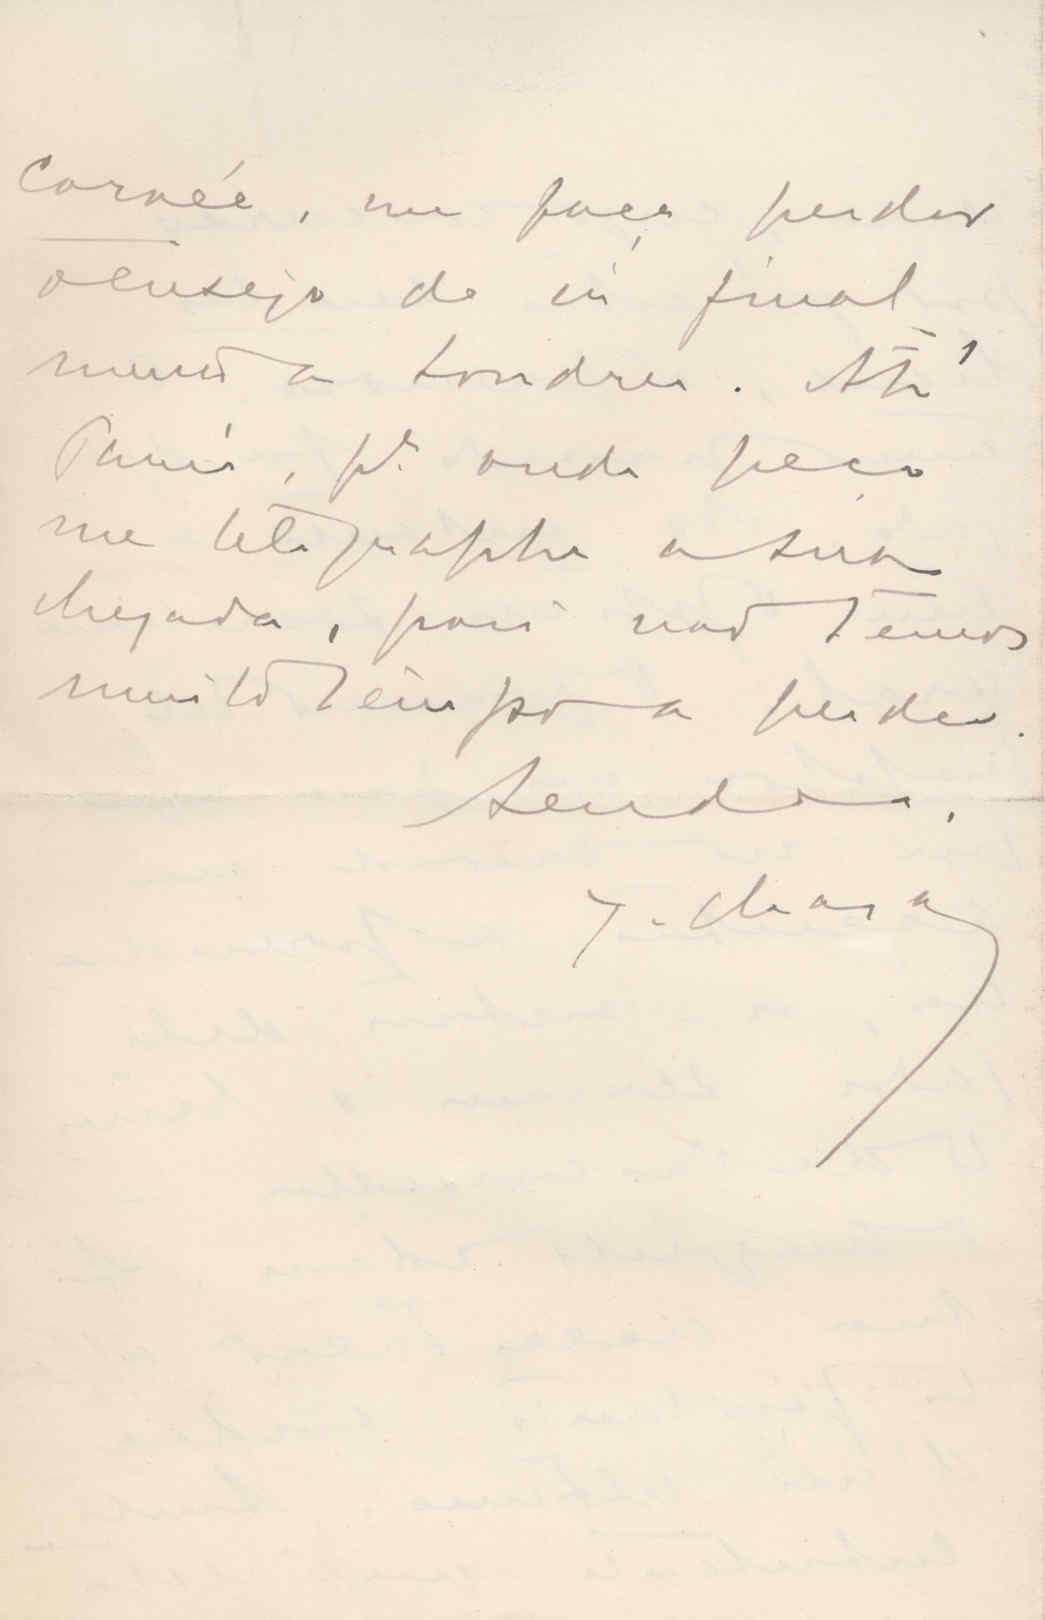 corvée, me faça perder
o ensejo de ir final
mente a Londres. Até
Paris, pª onde peço
me telegraphe a sua
chegada, pois não temos
muito tempo a perder.
Saudos.